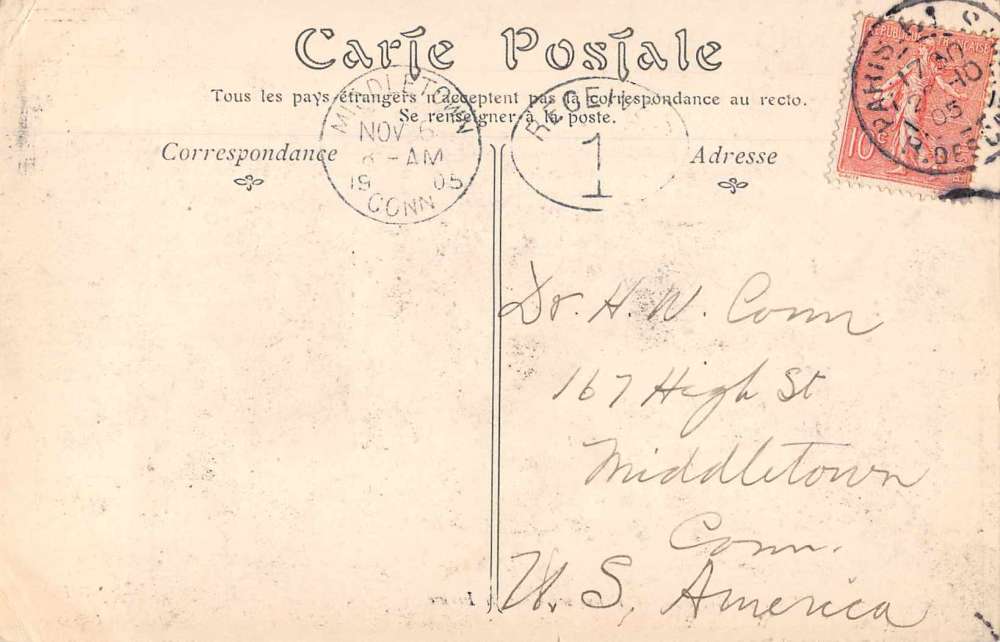 Carte Postale
Tous les pays étrangers n'acceptent pas la correspondance au recto.
Se renseigner à la poste.
Correspondance
Adresse
MIDDLETOWN
NOV 6
AM
19 05
CONN
1
REPUBLIQUE FRANÇAISE
10
PARIS
17
05
R. DES
Dr. H. W. Conn
167 High St
Middletown
Conn.
U. S. America